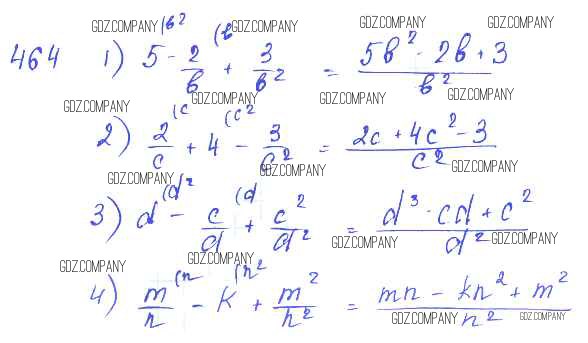 GDZ.COMPANY GDZ.COMPANY GDZ.COMPANY
464 1) 5(b² - 2/b(b + 3/b² = (5b² - 2b + 3)/b²
GDZ.COMPANY GDZ.COMPANY GDZ.COMPANY GDZ.COMPANY
2) 2/c(c + 4(c² - 3/c² = (2c + 4c² - 3)/c²
GDZ.COMPANY GDZ.COMPANY GDZ.COMPANY
3) d(d² - c/d(d + c²/d² = (d³ - cd + c²)/d²
GDZ.COMPANY GDZ.COMPANY GDZ.COMPANY GDZ.COMPANY
4) m/n(n - k(n² + m²/n² = (mn - kn² + m²)/n²
GDZ.COMPANY GDZ.COMPANY GDZ.COMPANY